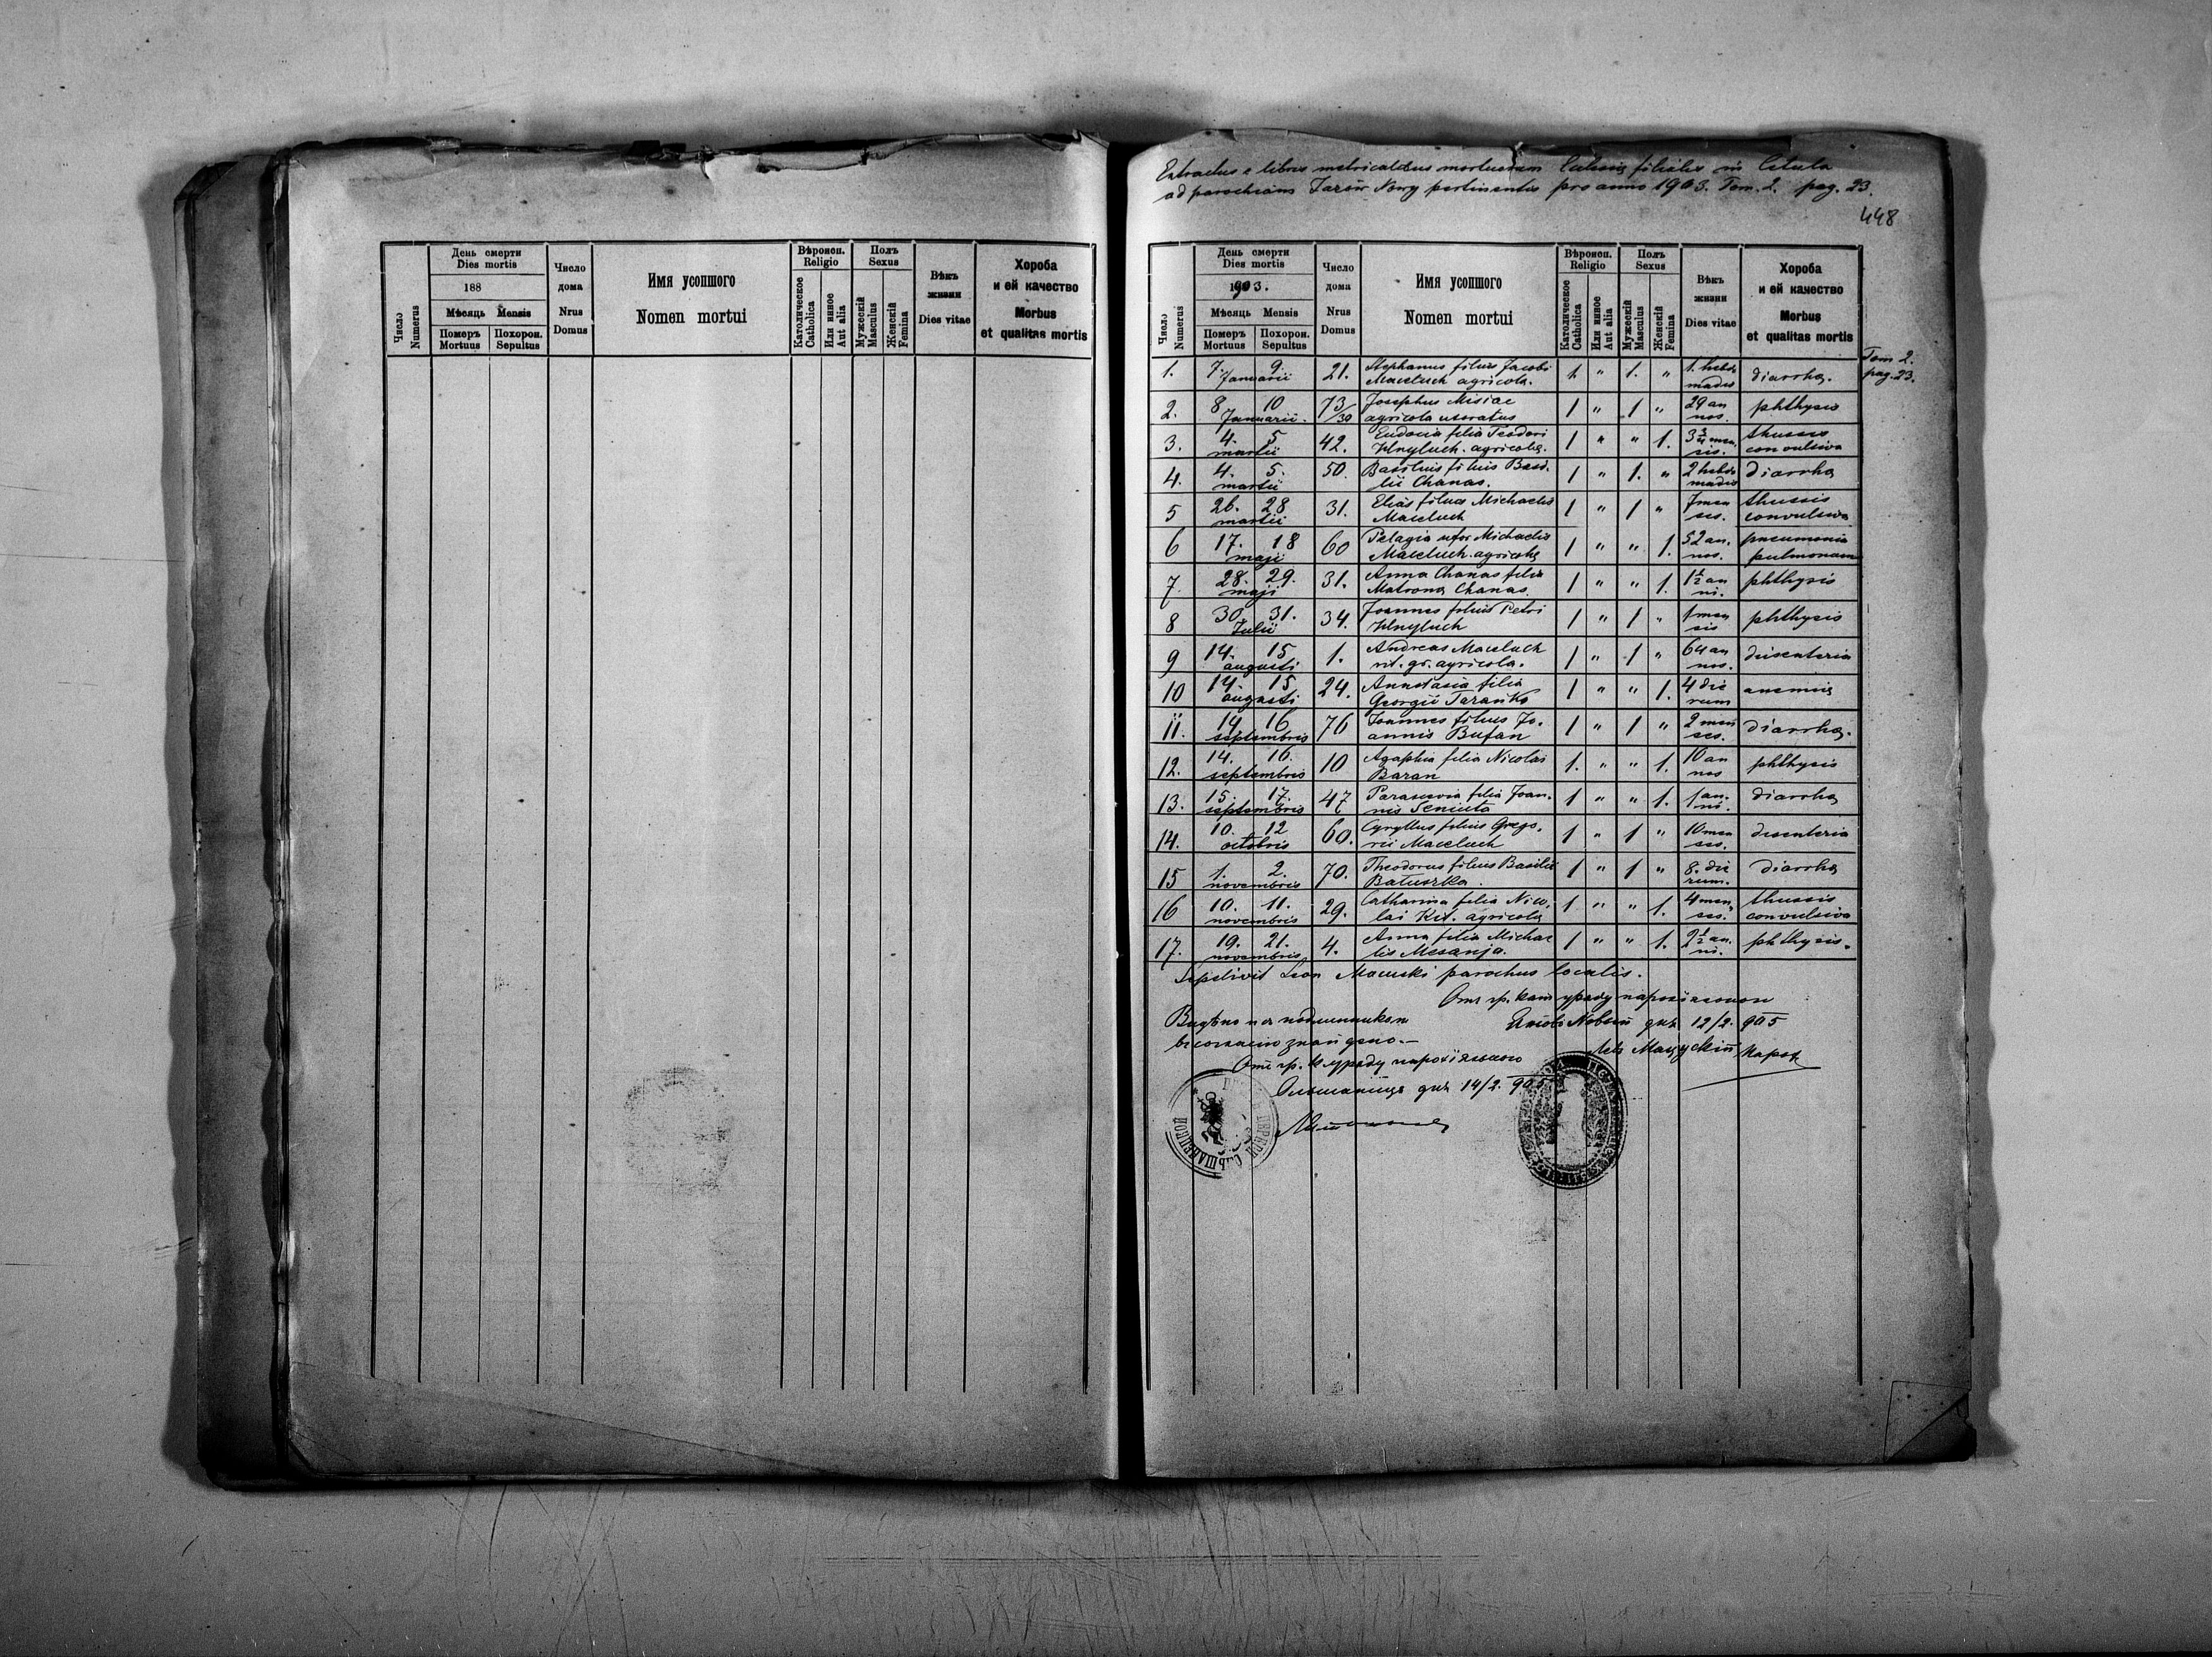 День смерти
Dies mortis
188
Мѣсяць Mensis
Померъ Mortuus
Похорон. Sepultus
Число Numerus
Число дома Nrus Domus
Имя усопшого
Nomen mortui
Вѣроисп. Religio
Католическое Catholica
Или инное Aut alia
Полъ Sexus
Мужескій Masculus
Женскій Femina
Вѣкъ жизни Dies vitae
Хороба и ей качество
Morbus et qualitas mortis
Extractus e libris metricalibus mortuorum Ecclesiae filialis in Cetula
ad parochiam Jazów Nowy pertinentis pro anno 1903. Tom. 2. pag. 23.
448
Число Numerus
День смерти
Dies mortis
1903.
Мѣсяць Mensis
Померъ Mortuus
Похорон. Sepultus
Число дома Nrus Domus
Имя усопшого
Nomen mortui
Вѣроисп. Religio
Католическое Catholica
Или инное Aut alia
Полъ Sexus
Мужескій Masculus
Женскій Femina
Вѣкъ жизни Dies vitae
Хороба и ей качество
Morbus et qualitas mortis
Tom 2.
pag. 23.
1. 7. 9. Januarii 21. Stephanus filius Jacobi
Maceluch agricola. 1. " 1. " 1. hebdo
madis diarrhea.
2. 8 10 Januarii. 73/30 Josephus Misiac
agricola uxoratus 1 " 1 " 29 an
nos. phthysis
3. 4. 5 martii 42. Eudocia filia Teodori
Hnyluch. agricola. 1 " " 1. 3 3/4 men
sis. thussis
convulsiva
4. 4. 5. martii 50. Basilius filius Basi
lii Chanas. 1 " 1. " 2 hebdo
madis diarrhea
5 26. 28 martii 31. Elias filius Michaelis
Maceluch 1 " 1 " 7 men
ses. thussis
convulsiva
6 17. 18 maji 60 Pelagia uxor Michaelis
Maceluch. agricola 1 " " 1. 52 an.
nos. pneumonia
pulmonum
7. 28. 29. maji 31. Anna Chanas filia
Matrona Chanas. 1 " " 1. 1 1/2 an
ni. phthysis
8 30. 31. Julii 34. Joannes filius Petri
Hnyluch 1 " 1 " 1 men
sis phthysis
9 14. 15 augusti 1. Andreas Maceluch
rit. gr. agricola. 1 " 1 " 64 an
nos. disenteria
10 14. 15 augusti 24. Annastasia filia
Georgii Taranko 1 " " 1. 4 die
rum anemia
11. 14. 16 septembris 76 Joannes filius Jo.
annis Bufan 1 " 1 " 2 men
ses. diarrhea.
12. 14. 16. septembris 10 Agaphia filia Nicolai
Baran 1. " " 1. 10 an
nos phthysis
13. 15. 17. septembris 47 Parascevia filia Joan.
nis Seniuta 1 " " 1. 1 an.
ni. diarrhea
14. 10. 12 octobris 60. Cyryllus filius Grego.
rii Maceluch 1 " 1 " 10 men
ses. disenteria
15 1. 2. novembris 70. Theodorus filius Basilii
Batuszka. 1 " 1 " 8. die
rum. diarrhea
16 10. 11. novembris 29. Catharina filia Nico.
lai Kit. agricola 1 " " 1. 4 men
ses. thussis
convulsiva
17. 19. 21. novembris 4. Anna filia Michae
lis Mesanja. 1 " " 1. 2 1/2 an.
ni. phthysis.
Sepelivit Leon Macuski parochus localis.
Отъ гр. кат. уряду парохіяльного
Язовъ Новый дня 12/2. 905
Левъ Мацускій парох
Видѣно и съ подлинником
въ согласіи знайдено.—
Отъ гр. к. уряду парохіяльного
Ольшаница дня 14/2. 905